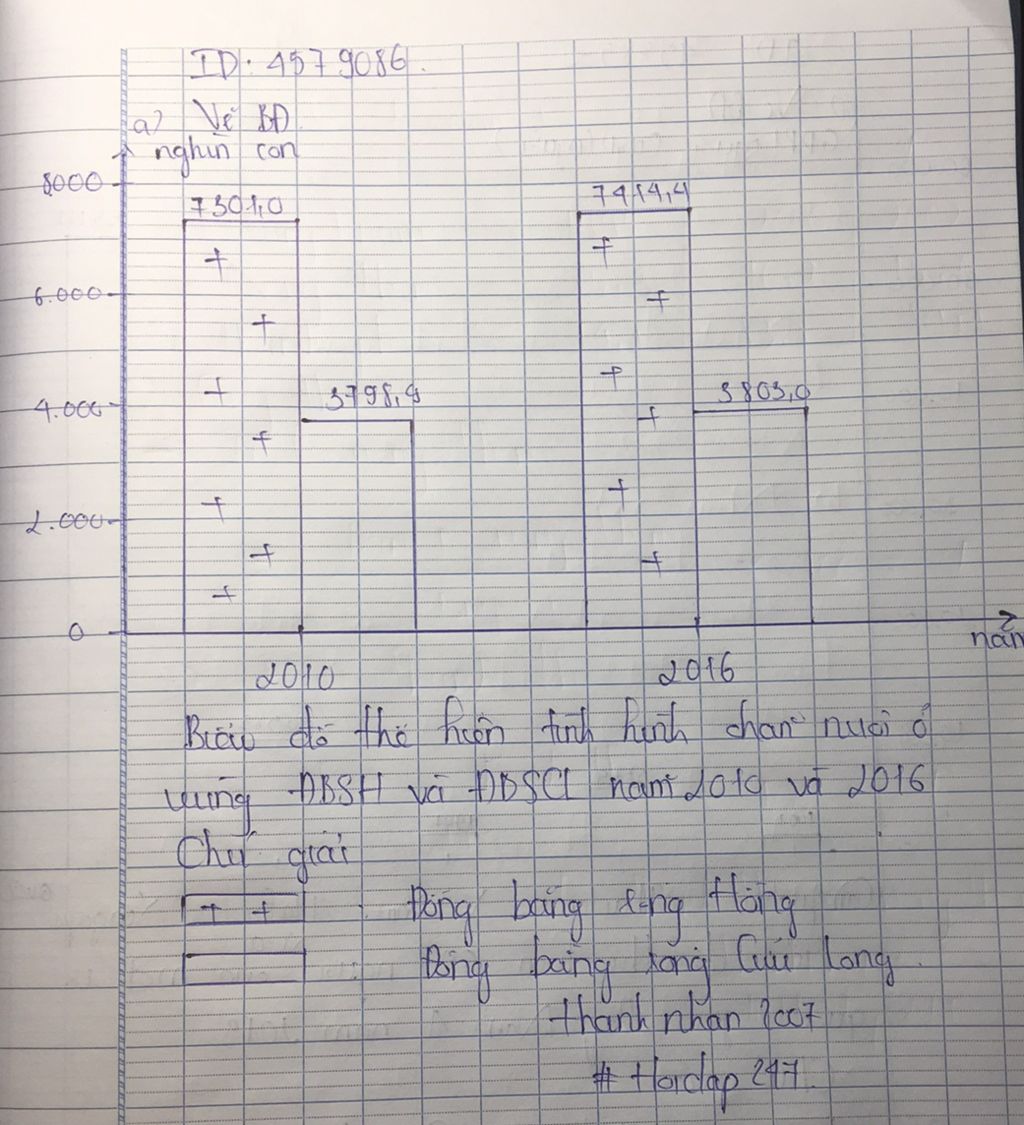 ID: 4579086.
a) Vẽ BĐ
nghìn con
8000
7301,0
7414,4
6.000
4.000
3798,9
3803,0
2.000
0
năm
2010
2016
Biểu đồ thể hiện tình hình chăn nuôi ở
vùng ĐBSH và ĐBSCL năm 2010 và 2016
Chú giải
Đồng bằng sông Hồng
Đồng bằng sông Cửu Long.
thanh nhan 2007
# Hoidap 247.